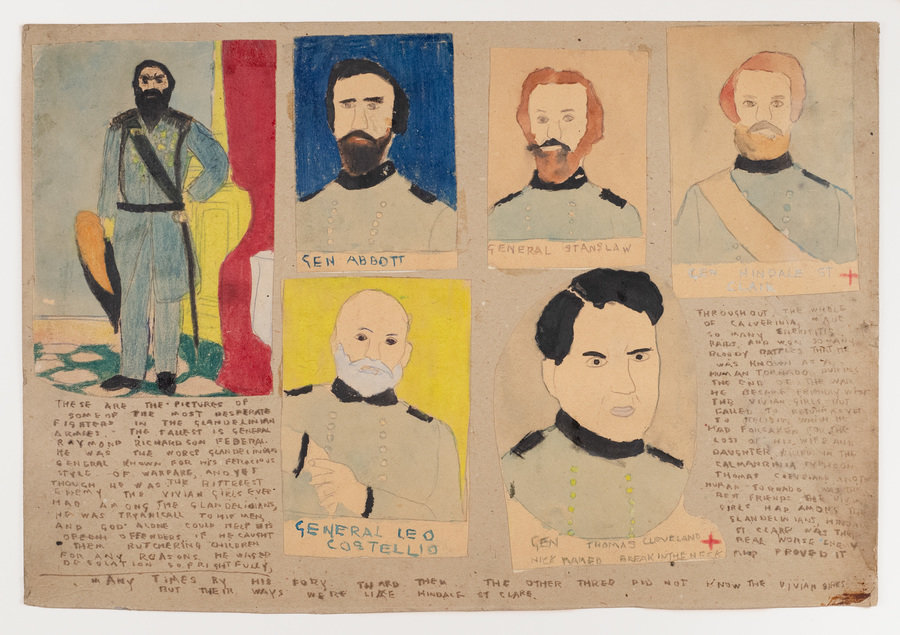 GEN ABBOTT
GENERAL STANSLAW
GEN HINDALE ST
CLAIR
GENERAL LEO
COSTELLIO
GEN THOMAS CLEVELAND
NICK NAMED BREAK IN THE NECK
THESE ARE THE PICTURES OF
SOME OF THE MOST DESPERATE
FIGHTERS IN THE GLANDELINIAN
ARMIES. THE TALLEST IS GENERAL
RAYMOND RICHARDSON FEDERAL.
HE WAS THE WORST GLANDELINIAN
GENERAL KNOWN FOR HIS FEROCIOUS
STYLE OF WARFARE, AND YET
THOUGH HE WAS THE BITTEREST
ENEMY, THE VIVIAN GIRLS EVER
HAD AMONG THE GLANDELINIANS,
HE WAS TYRANICALL TO HIS MEN,
AND GOD ALONE COULD HELP HIS
OFFENDERS IF HE CAUGHT
THEM BUTCHERING CHILDREN
FOR ANY REASONS. HE
DESOLATION SO FRIGHTFULLY,
THROUGHOUT, THE WHOLE
OF CALVERINIA, MADE
SO MANY
RAIDS, AND WON SO MANY
BLOODY BATTLES THAT HE
WAS KNOWN AS THE
HUMAN TORNADO, DURING
THE END OF THE WAR
HE BECAME FRIENDLY WITH
THE VIVIAN GIRLS, BUT
FAILED TO RETURN YET
TO RELIGION WHICH HE
HAD FORSAKEN FOR THE
LOSS OF HIS WIFE AND
DAUGHTER, KILLED IN THE
CALMANRINIA TYPHOON
THOMAS CLEVELAND ANOTHER
HUMAN TORNADO WAS THE
BEST FRIENDS THE VIVIAN
GIRLS HAD AMONG THE
GLANDELINIANS, HINDALE
ST CLARE WAS THEIR
REAL WORSE ENEMY
AND PROVED IT
MANY TIMES BY HIS FURY TOWARD THEM THE OTHER THREE DID NOT KNOW THE VIVIAN GIRLS
BUT THEIR WAYS WERE LIKE HINDALE ST CLARE.